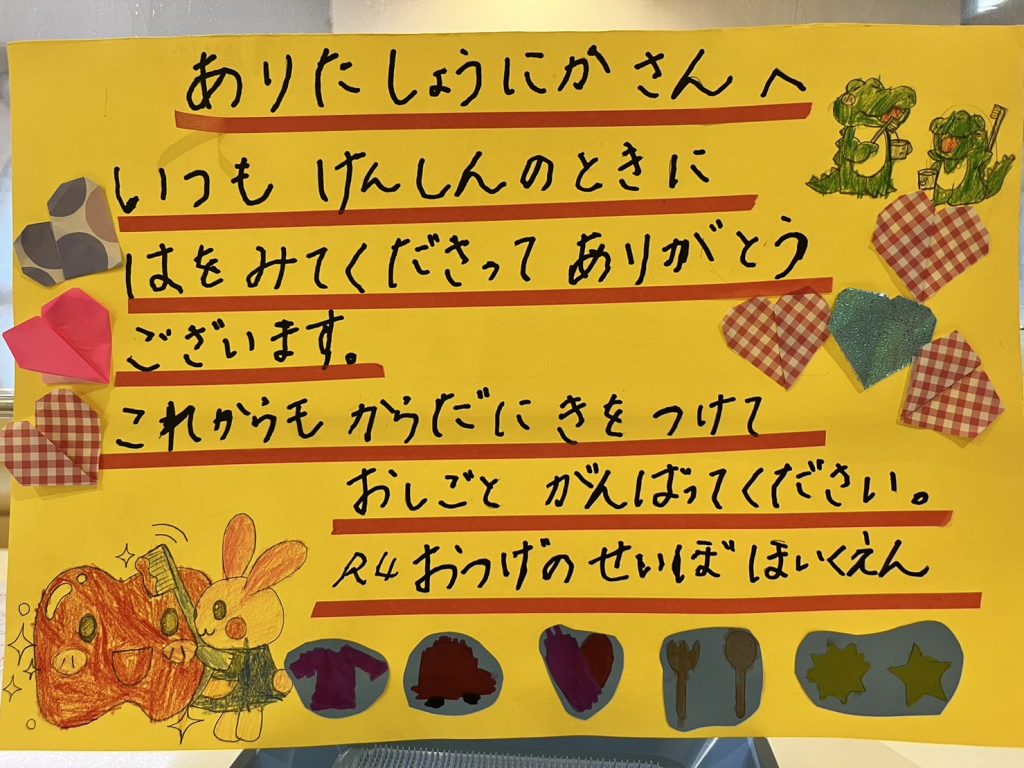 ありたしょうにかさんへ
いつも けんしんのときに
はをみてくださって ありがとう
ございます。
これからも からだに きを つけて
おしごと がんばってください。
R4 おうつげの せいぼ ほいくえん